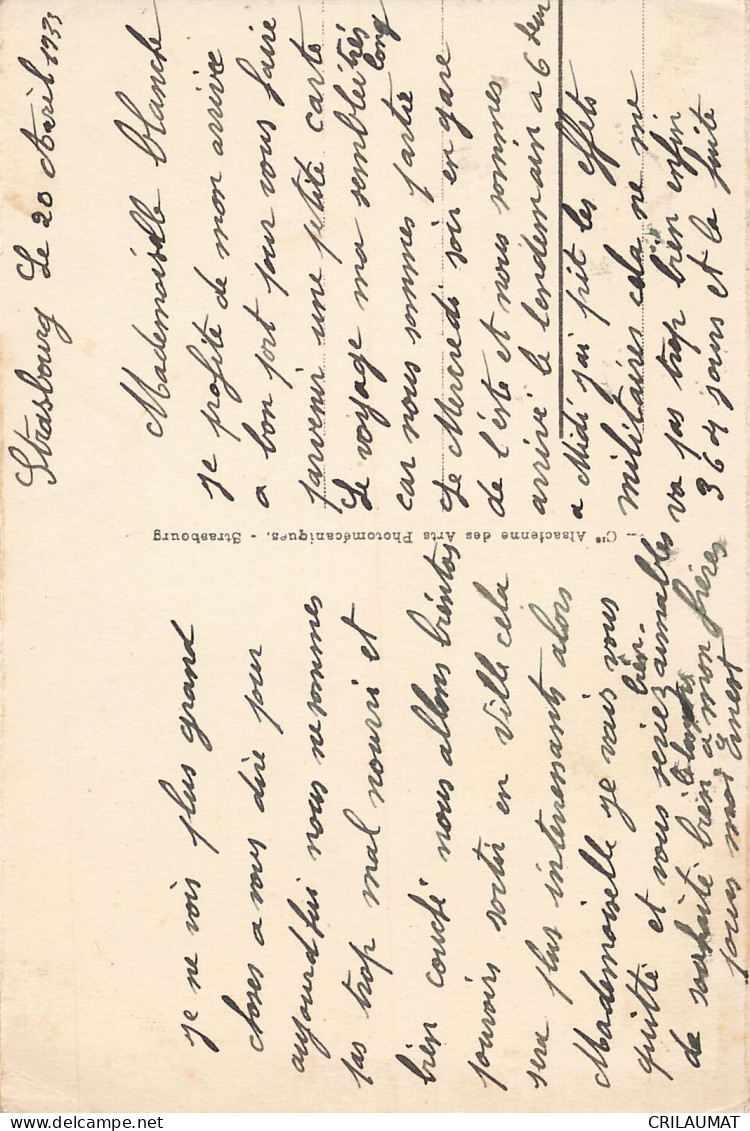 Strasbourg Le 20 Avril 1933
Mademoiselle Blanche
je profite de mon arrivé
a bon port pour vous faire
parvenir une ptite carte
Le voyage ma semblé très
long
car nous sommes partie
Le Mercredi soir en gare
de l'este et nous sommes
arrivé le lendemain a 6 heur
a Midi j'ai prit les effets
militaires cela ne me
va pas trop bien enfin
364 jours et la fuite
— Cie Alsacienne des Arts Photomécaniques. - Strasbourg
je ne vois plus grand
choses a vous dire pour
aujourd'hui nous ne sommes
pas trop mal nourri et
bien couché nous allons bientos
pouvoirs sortir en ville cela
sera plus interressants alors
Mademoiselle je vais vous
quitté et vous seriez aimables
bien
de souhaité bien a mon frères
pour moi Ernest
CRILAUMAT